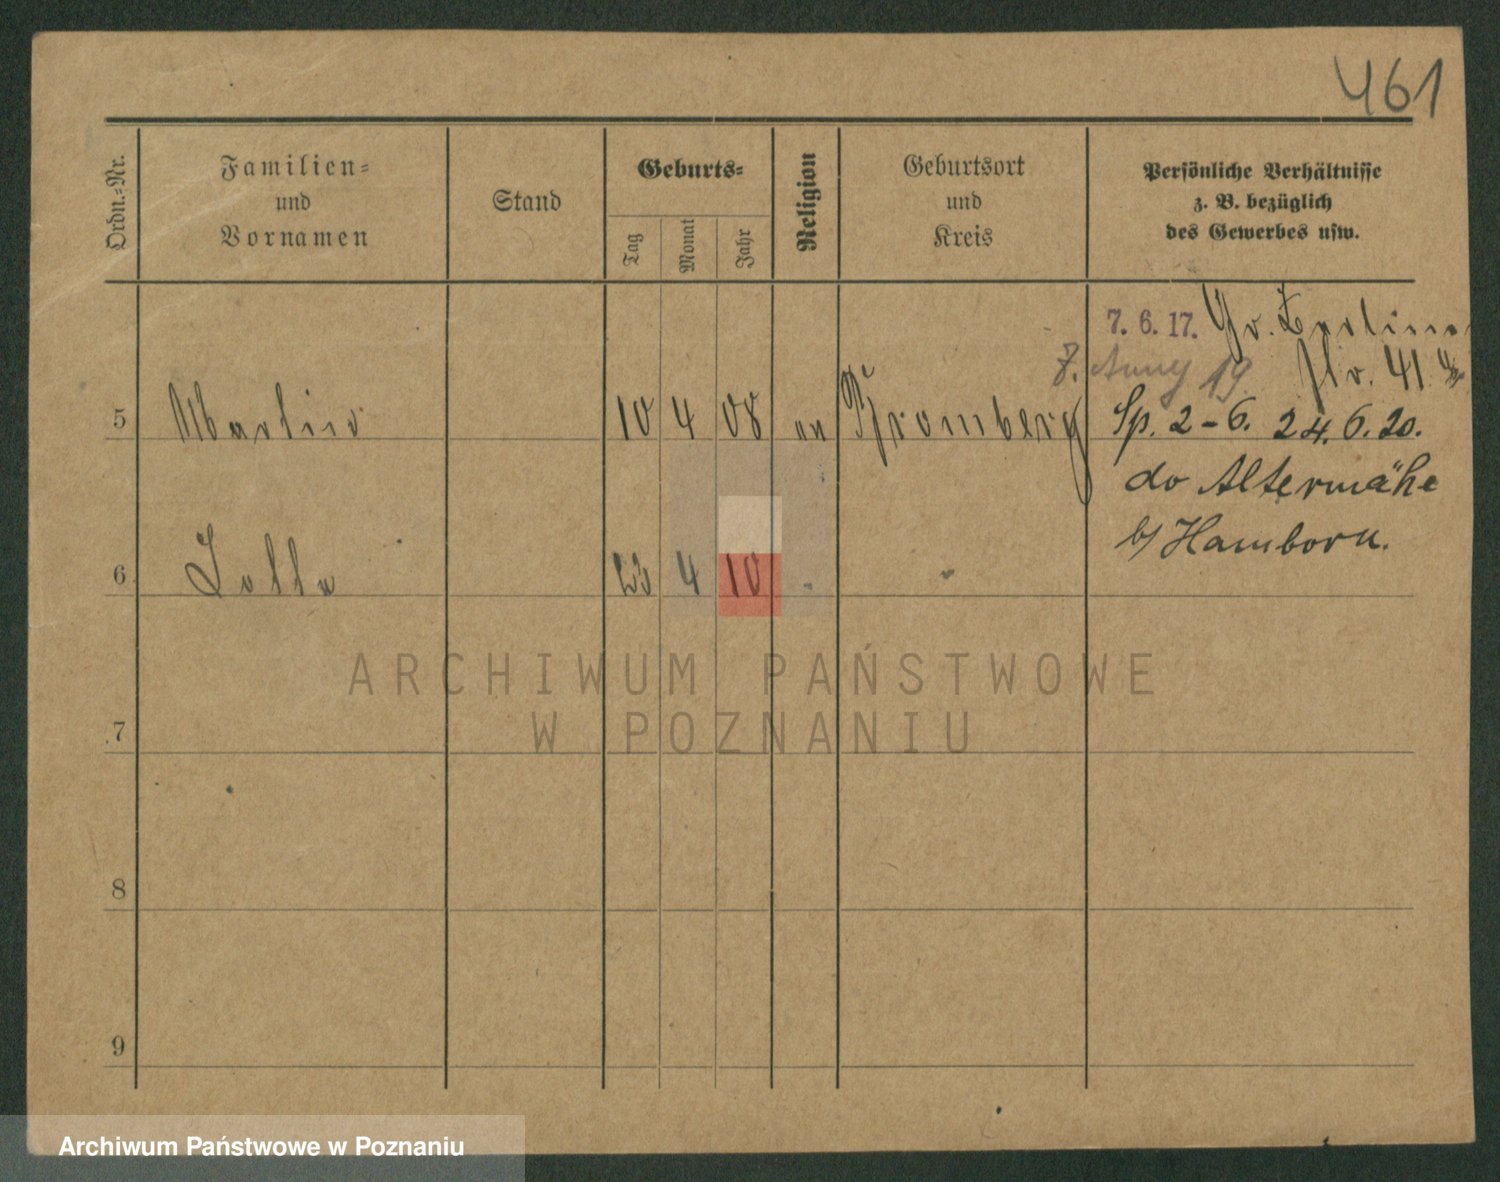 461
Ordn.-Nr.
Familien-
und
Vornamen
Stand
Geburts-
Tag
Monat
Jahr
Religion
Geburtsort
und
Kreis
Persönliche Verhältnisse
z. B. bezüglich
des Gewerbes usw.
7. 6. 17. Gr. Berliner
7. 19 str. 41
5 10 4 08 Bromberg Sp. 2-6. 24.6.20.
do Altermähe
b/ Hamborn.
6 23 4 10
7
8
9
ARCHIWUM PAŃSTWOWE
W POZNANIU
Archiwum Państwowe w Poznaniu